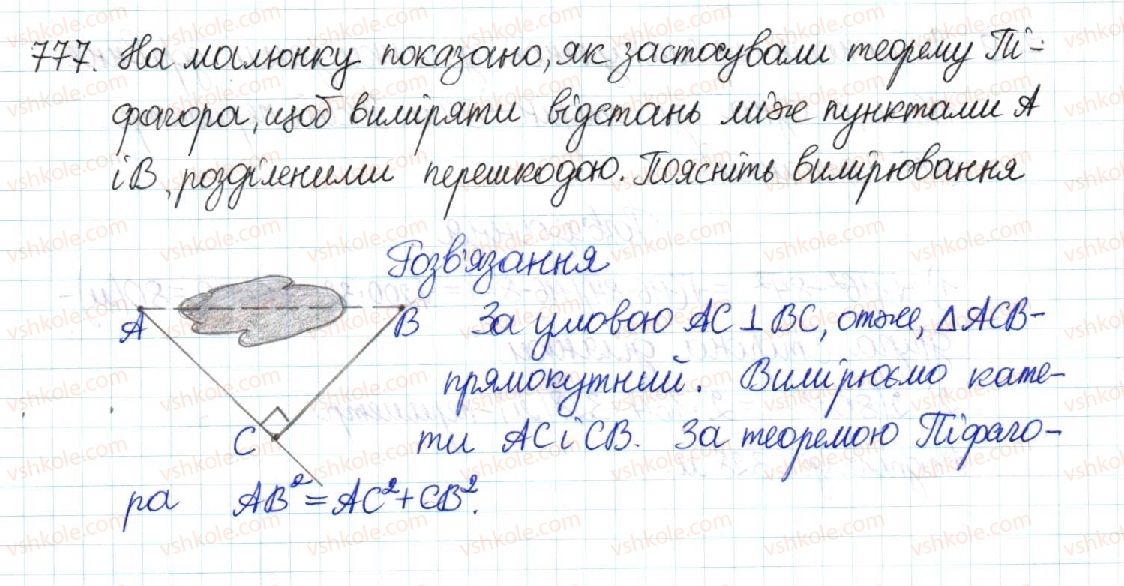 777. На малюнку показано, як застосували теорему Пі-
фагора, щоб виміряти відстань між пунктами А
і В, розділеними перешкодою. Поясніть вимірювання
Розв'язання
А В За умовою AC ⊥ BC, отже, △ACB -
прямокутний. Вимірюємо кате-
С ти AC і CB. За теоремою Піфаго-
ра AB² = AC² + CB².
vshkole.com